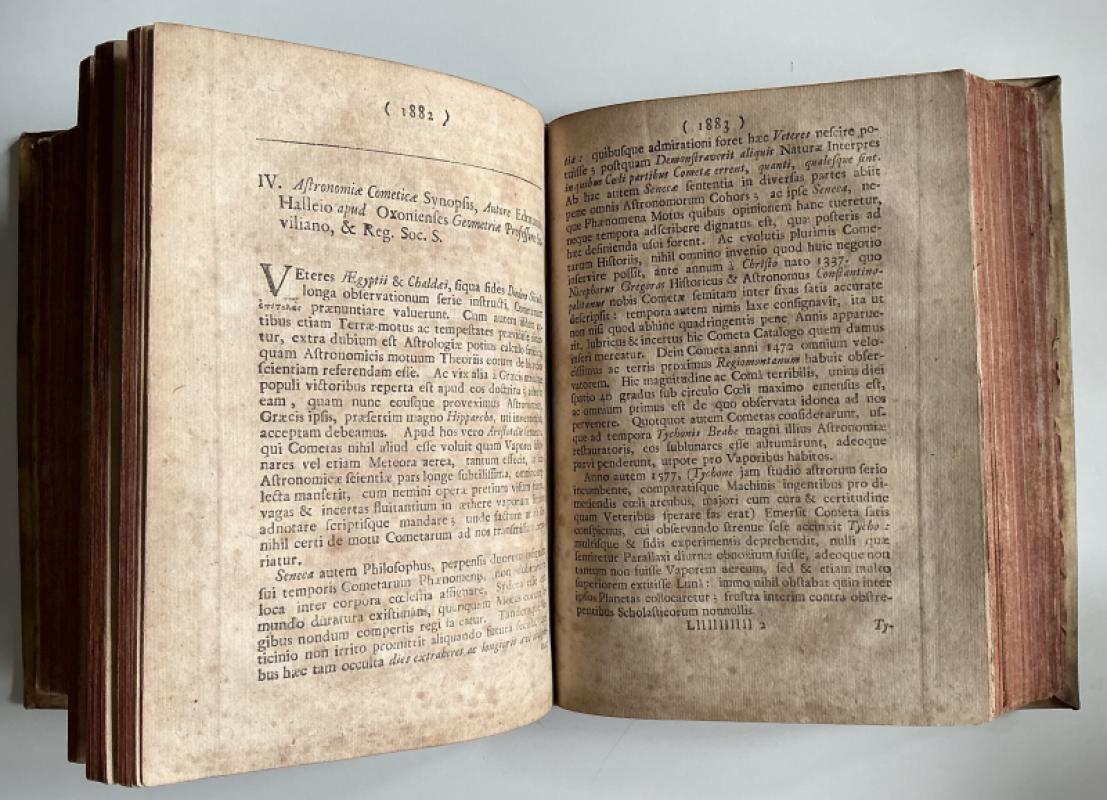 ( 1882 )
IV. Aſtronomiæ Cometicæ Synopſis, Autore
Halleio apud Oxonienſes Geometriæ Profeſſore
viliano, & Reg. Soc. S.
VEteres Ægyptii & Chaldæi, ſiqua fides
longa obſervationum ſerie inſtructi,
ἐπιτολὰς prænuntiare valuerunt. Cum autem
tibus etiam Terræ-motus ac tempeſtates
tur, extra dubium eſt Aſtrologiæ potius calculo
quam Aſtronomicis motuum Theoriis eorum de
ſcientiam referendam eſſe. Ac vix alia à Græcis
populi victoribus reperta eſt apud eos doctrina;
eam, quam nunc eouſque proveximus
Græcis ipſis, præſertim magno Hipparcho, uti
acceptam debeamus. Apud hos vero
qui Cometas nihil aliud eſſe voluit quam Vapores
nares vel etiam Meteora aerea, tantum effecit,
Aſtronomicæ ſcientiæ pars longe ſubtiliſſima,
lecta manſerit, cum nemini operæ pretium viſum
vagas & incertas fluitantium in æthere vaporum
adnotare ſcriptiſque mandare; unde factum
nihil certi de motu Cometarum ad nos
riatur.
Seneca autem Philoſophus, perpenſis duorum
ſui temporis Cometarum Phænomenis, non
loca inter corpora cœleſtia aſſignare, Sydera
mundo duratura exiſtimans, quanquam Motus eorum
gibus nondum compertis regi fateatur. Tandem
ticinio non irrito promittit aliquando futura ſecula,
bus hæc tam occulta dies extraheret ac longioris ævi
( 1883 )
tia: quibuſque admirationi foret hæc Veteres neſcire po-
tuiſſe; poſtquam Demonſtraverit aliquis Naturæ Interpres
in quibus Cœli partibus Cometæ errent, quanti, qualeſque ſint.
Ab hac autem Senecæ ſententia in diverſas partes abiit
pene omnis Aſtronomorum Cohors; ac ipſe Seneca, ne-
que Phænomena Motus quibus opinionem hanc tueretur,
neque tempora adſcribere dignatus eſt, quæ poſteris ad
hæc definienda uſui forent. Ac evolutis plurimis Come-
tarum Hiſtoriis, nihil omnino invenio quod huic negotio
inſervire poſſit, ante annum à Chriſto nato 1337. quo
Nicephorus Gregoras Hiſtoricus & Aſtronomus Conſtantino-
politanus nobis Cometæ ſemitam inter fixas ſatis accurate
deſcripſit: tempora autem nimis laxe conſignavit, ita ut
non niſi quod abhinc quadringentis pene Annis apparue-
rit, lubricus & incertus hic Cometa Catalogo quem damus
inſeri mereatur. Dein Cometa anni 1472 omnium velo-
ciſſimus ac terris proximus Regiomontanum habuit obſer-
vatorem. Hic magnitudine ac Comâ terribilis, unius diei
ſpatio 40 gradus ſub circulo Cœli maximo emenſus eſt,
ac omnium primus eſt de quo obſervata idonea ad nos
pervenere. Quotquot autem Cometas conſiderarunt, uſ-
que ad tempora Tychonis Brahe magni illius Aſtronomiæ
reſtauratoris, eos ſublunares eſſe autumârunt, adeoque
parvi penderunt, utpote pro Vaporibus habitos.
Anno autem 1577, (Tychone jam ſtudio aſtrorum ſerio
incumbente, comparatiſque Machinis ingentibus pro di-
metiendis cœli arcubus, majori cum cura & certitudine
quam Veteribus ſperare fas erat) Emerſit Cometa ſatis
conſpicuus, cui obſervando ſtrenue ſeſe accinxit Tycho:
multiſque & fidis experimentis deprehendit, nulli quæ
ſentiretur Parallaxi diurnæ obnoxium fuiſſe, adeoque non
tantum non fuiſſe Vaporem aereum, ſed & etiam multo
ſuperiorem extitiſſe Lunâ: immo nihil obſtabat quin inter
ipſos Planetas collocaretur; fruſtra interim contra obſtre-
pentibus Scholaſticorum nonnullis.
Llllllllll 2 Ty-